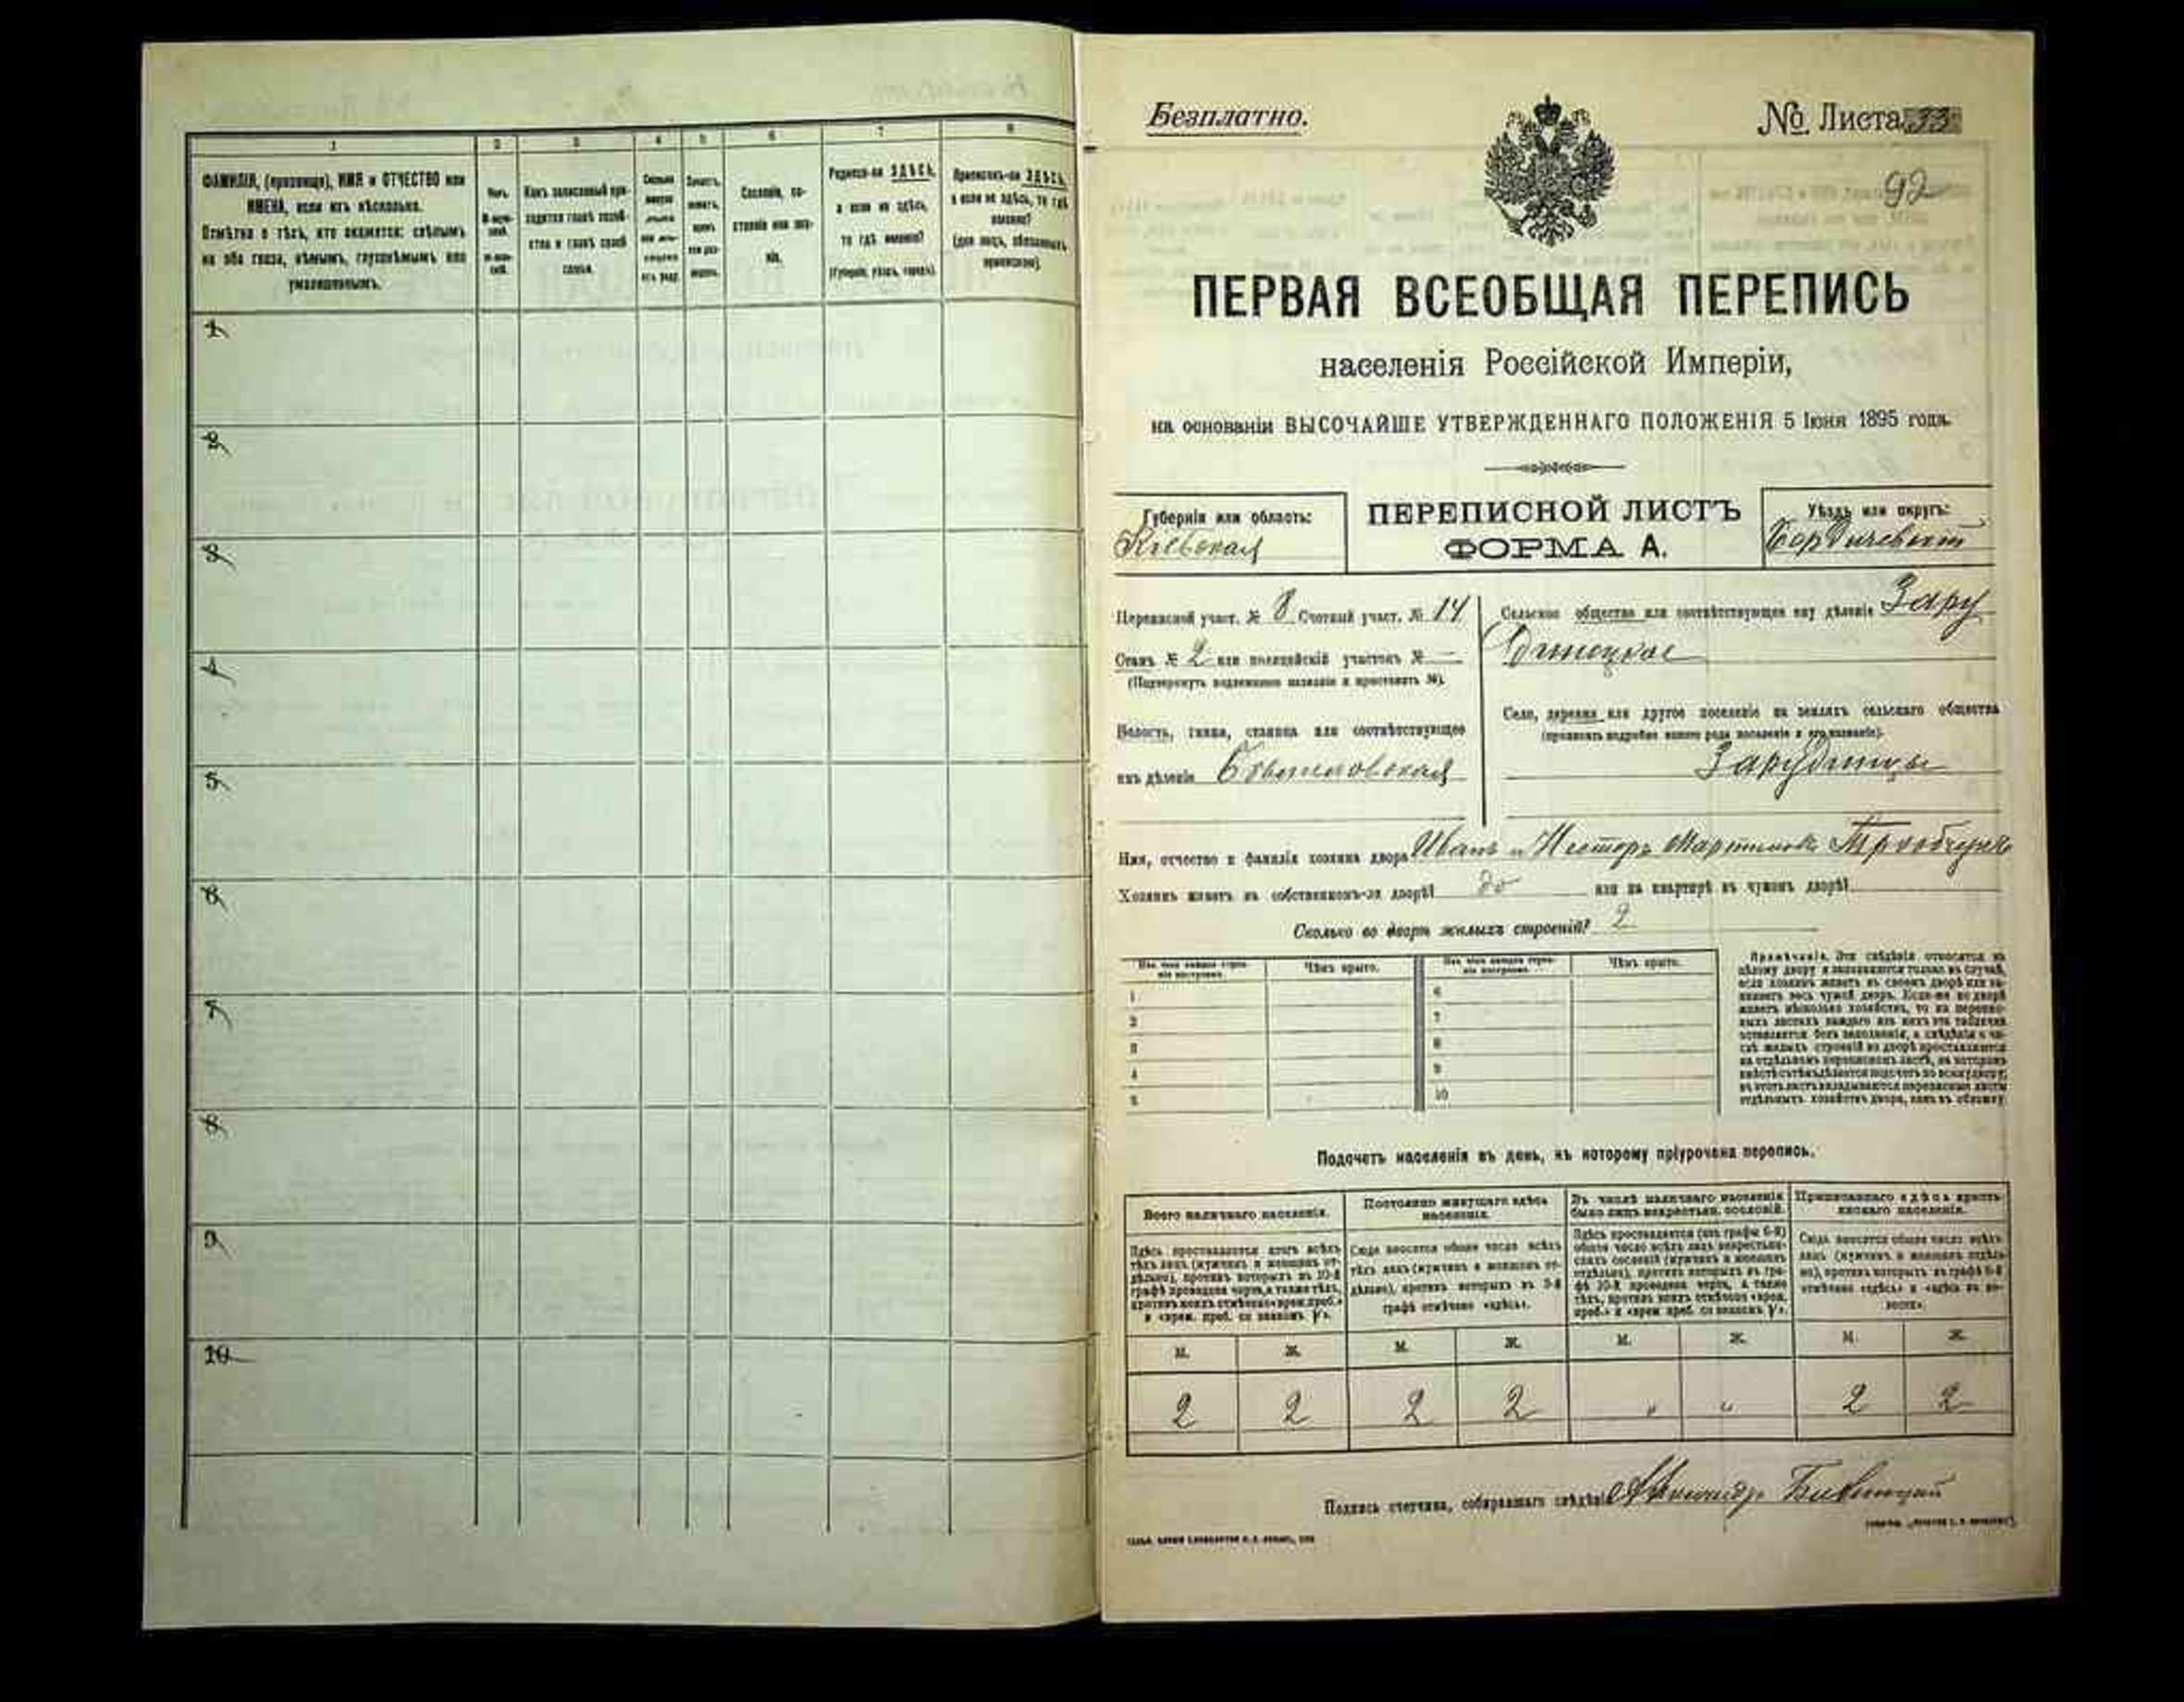 1 2 3 4 5 6 7 8
ФАМИЛІЯ, (прозвище), ИМЯ и ОТЧЕСТВО или
ИМЕНА, если ихъ нѣсколько.
Отмѣтка о тѣхъ, кто окажется: слѣпымъ
на оба глаза, нѣмымъ, глухонѣмымъ или
умалишеннымъ.
Полъ.
М-муж-
ской.
Ж-жен-
скій.
Какъ записанный при-
ходится главѣ хозяй-
ства и главѣ своей
семьи.
Сколько
минуло
лѣтъ
Сословіе, со-
стояніе или зва-
ніе.
Родился-ли ЗДѢСЬ,
а если не здѣсь,
то гдѣ именно?
(Губернія, уѣздъ, городъ).
Приписанъ-ли ЗДѢСЬ,
а если не здѣсь, то гдѣ
именно?
(для лицъ, обязанныхъ
припискою).
1
2
3
4
5
6
7
8
9
10
Безплатно.
№ Листа 33
92
ПЕРВАЯ ВСЕОБЩАЯ ПЕРЕПИСЬ
населенія Россійской Имперіи,
на основаніи ВЫСОЧАЙШЕ УТВЕРЖДЕННАГО ПОЛОЖЕНІЯ 5 Іюня 1895 года.
Губернія или область:
Кіевская
ПЕРЕПИСНОЙ ЛИСТЪ
ФОРМА А.
Уѣздъ или округъ:
Бердичевскій
Переписной участ. № 8 Счетный участ. № 14
Станъ № 2 или полицейскій участокъ № —
(Подчеркнуть подлежащее названіе и проставить №).
Волость, гмина, станица или соответствующее
имъ дѣленіе
Сельское общество или соотвѣтствующее ему дѣленіе Зару
динецкое
Село, деревня или другое поселеніе на земляхъ сельскаго общества
(прописать подробно какого рода поселеніе и его названіе).
Зарудинцы
Имя, отчество и фамилія хозяина двора Иванъ и Несторъ
Хозяинъ живетъ въ собственномъ-ли дворѣ? да или на квартирѣ въ чужомъ дворѣ?
Сколько во дворѣ жилыхъ строеній? 2
Изъ чего каждое строе-
ніе построено.
Чѣмъ крыто.
Изъ чего каждое строе-
ніе построено.
Чѣмъ крыто.
1 6
2 7
3 8
4 9
5 10
Примѣчаніе. Эти свѣдѣнія относятся къ
цѣлому двору и заполняются только въ случаѣ,
если хозяинъ живетъ въ своемъ дворѣ или за-
нимаетъ весь чужой дворъ. Если-же во дворѣ
живетъ нѣсколько хозяйствъ, то на перепис-
ныхъ листахъ каждаго изъ нихъ эта табличка
оставляется безъ заполненія, а свѣдѣнія о чи-
слѣ жилыхъ строеній во дворѣ проставляются
на отдѣльномъ переписномъ листѣ, на которомъ
вмѣстѣ съ тѣмъ дѣлается подсчетъ по всему двору;
въ этотъ листъ вкладываются переписные листы
отдѣльныхъ хозяйствъ двора, какъ въ обложку.
Подсчетъ населенія въ день, къ которому пріурочена перепись.
Всего наличнаго населенія.
Постоянно живущаго здѣсь
населенія.
Въ числѣ наличнаго населенія
было лицъ некрестьян. сословій.
Приписаннаго здѣсь кресть-
янскаго населенія.
Здѣсь проставляется итогъ всѣхъ
тѣхъ лицъ (мужчинъ и женщинъ от-
дѣльно), противъ которыхъ въ 10-й
графѣ проведена черта, а также тѣхъ,
противъ коихъ отмѣчено «врем. преб.»
и «врем. преб. со знакомъ V».
Сюда вносится общее число всѣхъ
тѣхъ лицъ (мужчинъ и женщинъ от-
дѣльно), противъ которыхъ въ 9-й
графѣ отмѣчено «здѣсь».
Здѣсь проставляется (изъ графы 6-й)
общее число всѣхъ лицъ некрестьян-
скихъ сословій (мужчинъ и женщинъ
отдѣльно), противъ которыхъ въ гра-
фѣ 10-й проведена черта, а также
тѣхъ, противъ коихъ отмѣчено «врем.
преб.» и «врем. преб. со знакомъ V».
Сюда вносится общее число всѣхъ
лицъ (мужчинъ и женщинъ отдѣль-
но), противъ которыхъ въ графѣ 8-й
отмѣчено «здѣсь» и «здѣсь въ во-
лости».
М. Ж. М. Ж. М. Ж. М. Ж.
2 2 2 2 " " 2 2
Подпись счетчика, собиравшаго свѣдѣнія Александр